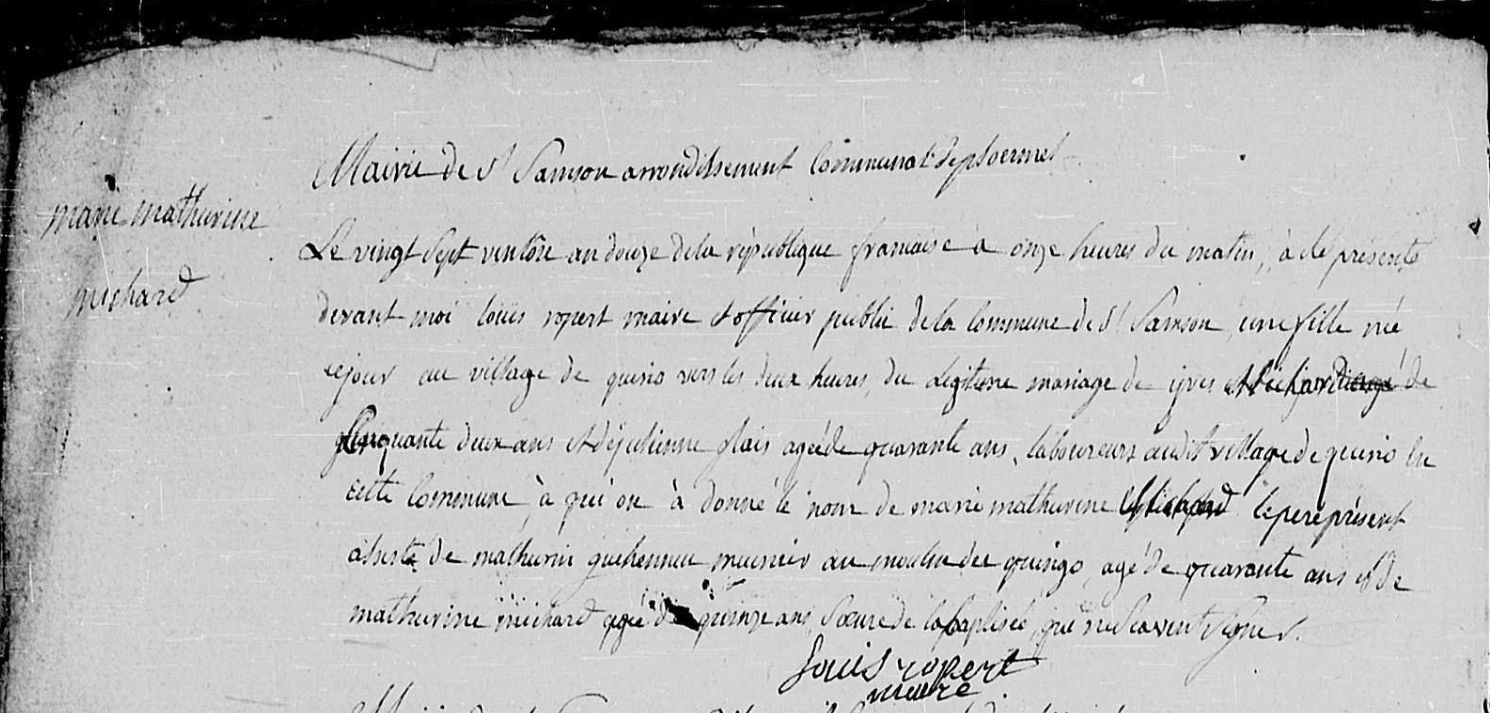 Mairie de St Samson arrondissement Communal de ploermel
marie mathurine
michard
Le vingt Sept ventôse an douze de la république francaise à onze heures du matin, à été présenté
devant moi louis ropert maire et officier public de la Commune de St Samson, une fille née
ce jour au village de quino vers les deux heures, du légitime mariage de yves Michard agé de
Cinquante deux ans et de julienne glais agée de quarante ans, laboureurs audit village de quino en
cette Commune, à qui on à donné le nom de marie mathurine Michard le pere présent
assisté de mathurin guehenneu meunier au moulin de quingo, agé de quarante ans et de
mathurine michard agée de quinze ans, Sœur de la baptisée, qui ne Scavent Signer.
Louis ropert
maire